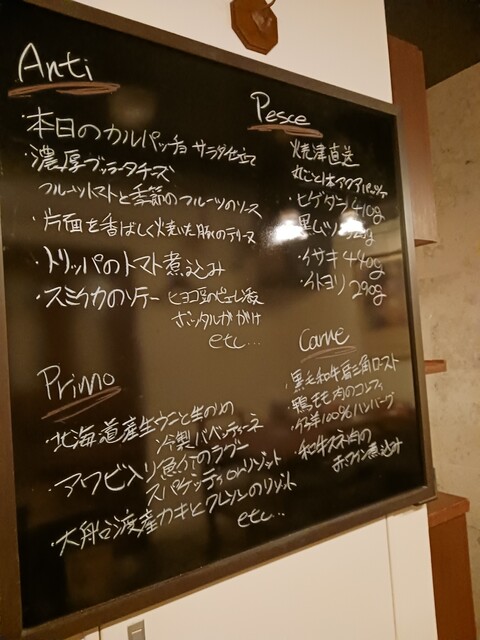 Anti
・本日のカルパッチョ サラダ仕立て
・濃厚ブッラータチーズ
フルーツトマトと季節のフルーツのソース
・片面を香ばしく焼いた豚のテリーヌ
・トリッパのトマト煮込み
・スミイカのソテー ヒヨコ豆のピューレ添え
ボッタルガがけ
etc...
Primo
・北海道産生ウニと生のりの
冷製パペッティーネ
・アワビ入り魚介のラグー
スパゲッティ orリゾット
・大船渡産カキとクレソンのリゾット
etc...
Pesce
焼津直送
丸ごと1本アクアパッツァ
・ヒゲダラ 410g
・黒ムツ
・イサキ 440g
・イトヨリ 290g
Carne
・黒毛和牛肩三角ロースト
・鴨もも肉のコンフィ
・仔羊100%ハンバーグ
・和牛スネ肉の
赤ワイン煮込み